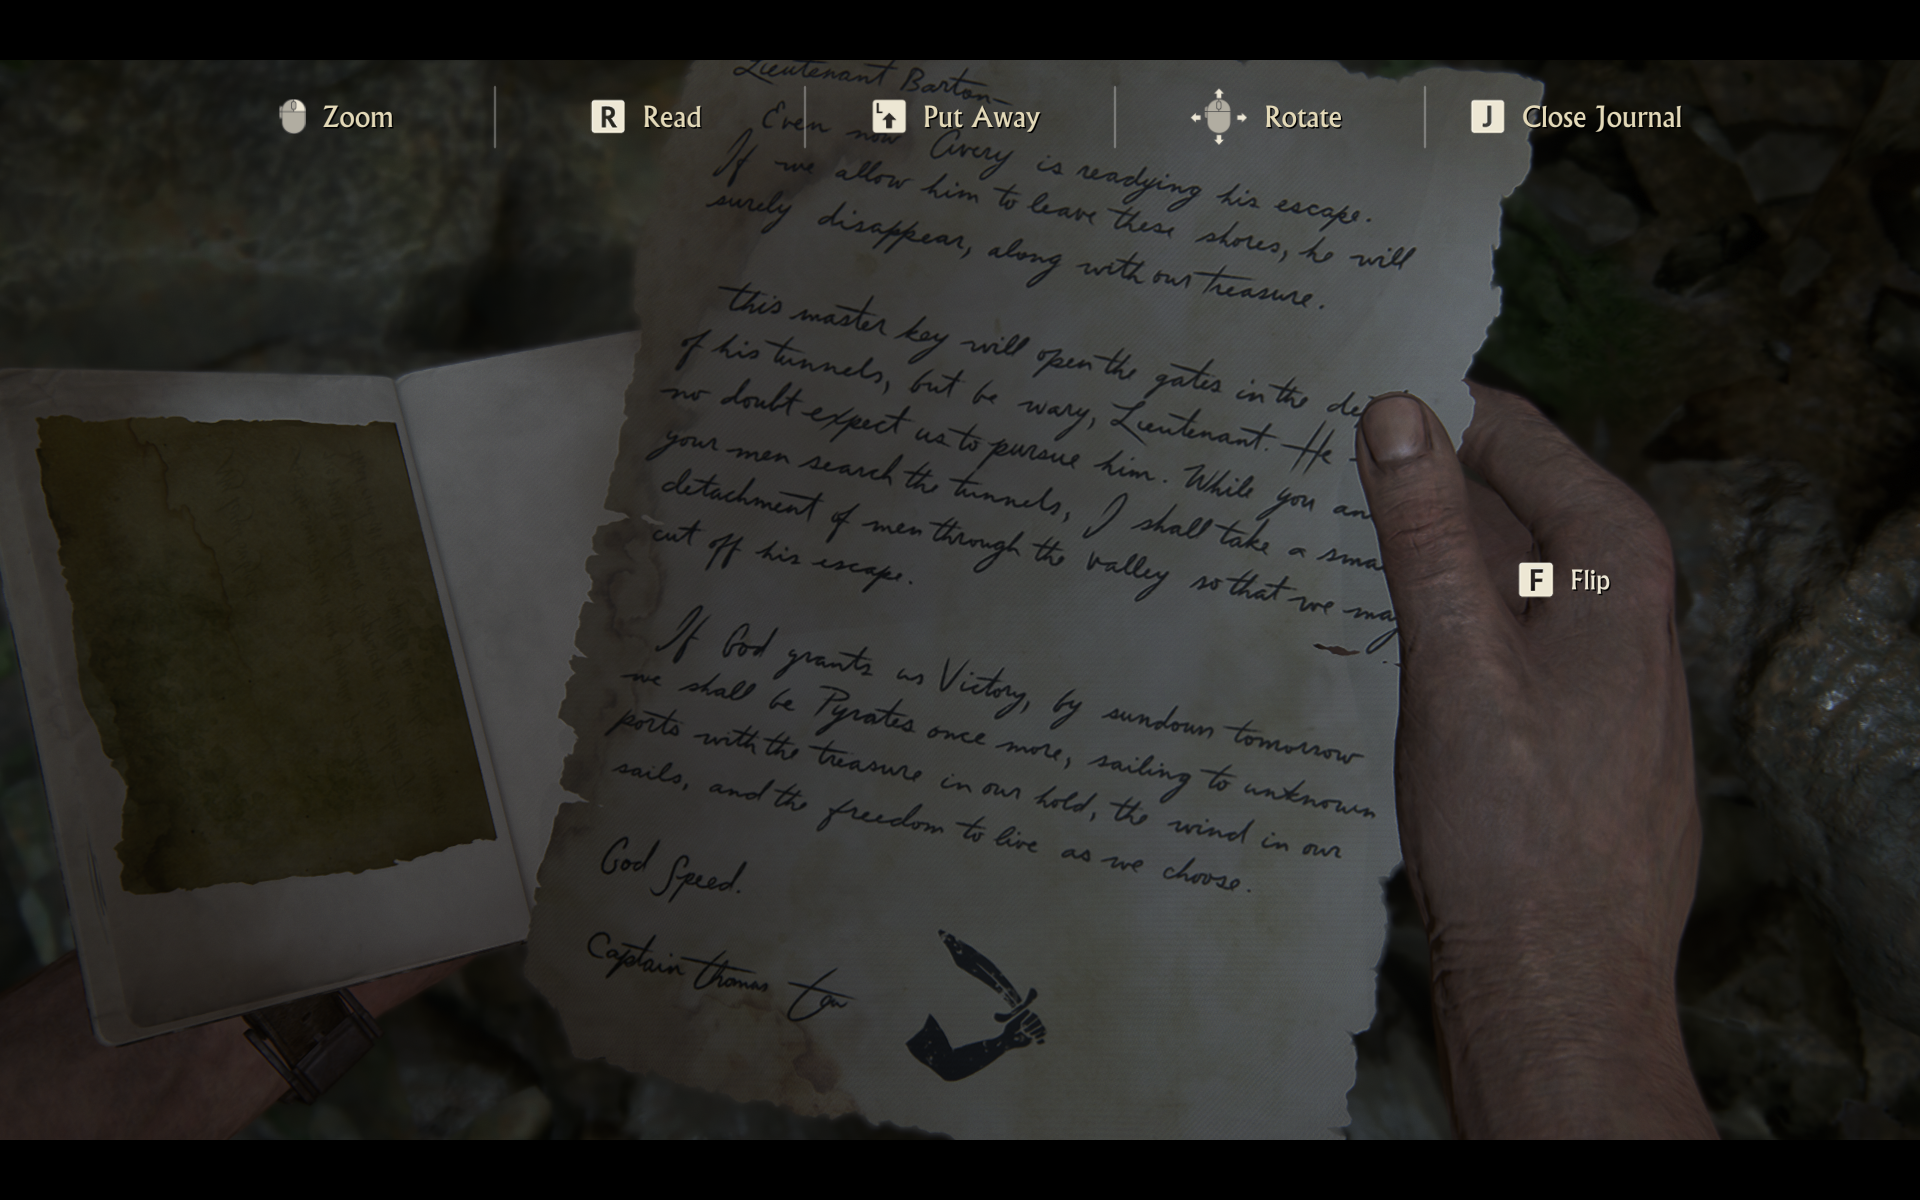 Zoom
R Read
L Put Away
Rotate
J Close Journal
Lieutenant Barton
Even now Avery is readying his escape.
If we allow him to leave these shores, he will
surely disappear, along with our treasure.
This master key will open the gates in the
of his tunnels, but be wary, Lieutenant. He
no doubt expect us to pursue him. While you an
your men search the tunnels, I shall take a sma
detachment of men through the valley so that we may
cut off his escape.
If God grants us Victory, by sundown tomorrow
we shall be Pyrates once more, sailing to unknown
ports with the treasure in our hold, the wind in our
sails, and the freedom to live as we choose.
God Speed.
Captain Thomas Tew
F Flip